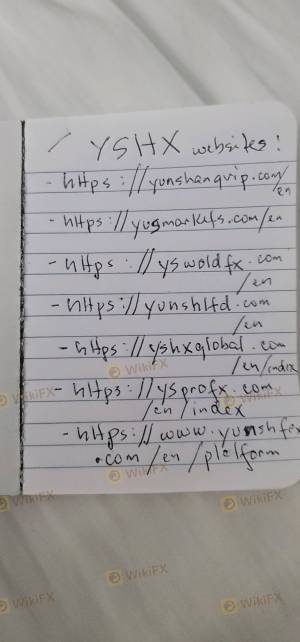 YSHX websites:
- https://yunshangvip.com/
en
- https://yusmarkets.com/en
- https://yswoldfx.com
/en
- https://yunshltd.com
/en
- https://yshxglobal.com
/en/index
- https://ysprofx.com
/en/index
- https://www.yunshfx
.com/en/platform
WikiFX
WikiFX
WikiFX
WikiFX
WikiFX
WikiFX
WikiFX
WikiFX
WikiFX